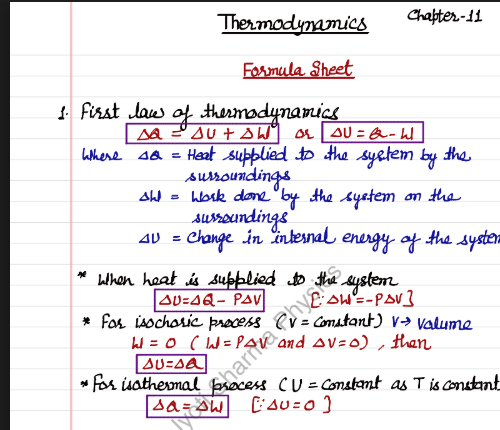 Thermodynamics
Chapter-11
Formula Sheet
1. First law of thermodynamics
ΔQ = ΔU + ΔW or ΔU = Q - W
Where ΔQ = Heat supplied to the system by the
surroundings
ΔW = Work done by the system on the
surroundings
ΔU = Change in internal energy of the system
* When heat is supplied to the system
ΔU=ΔQ - PΔV [∵ ΔW=-PΔV]
* For isochoric process (V = constant) V→ Volume
W = 0 ( W = PΔV and ΔV=0) , then
ΔU=ΔQ
* For isothermal process (U = constant as T is constant
ΔQ = ΔW [∵ ΔU=0]
Jyoti Sharma Physics